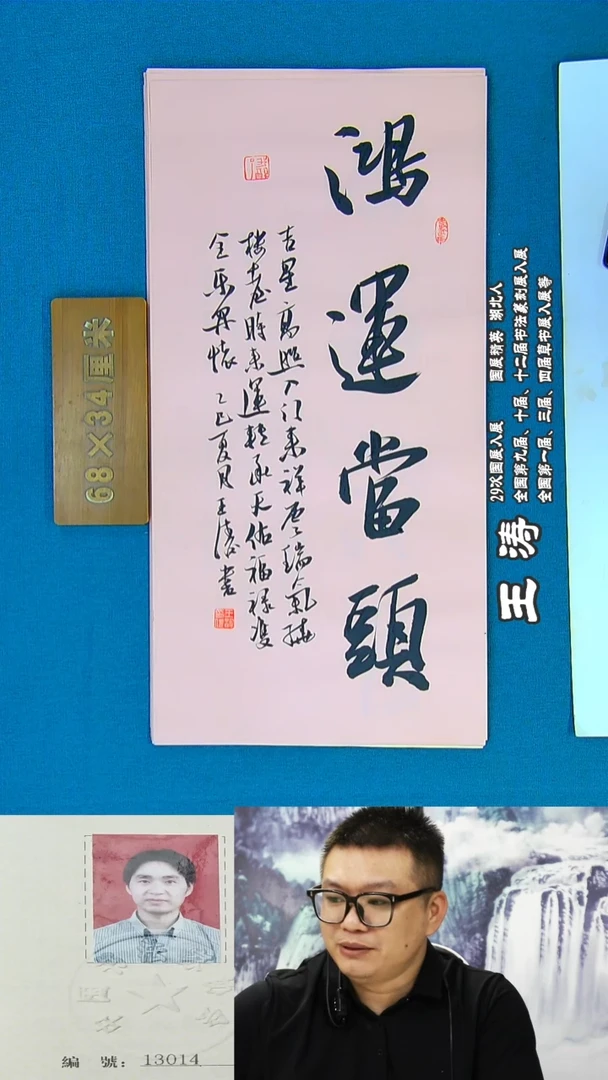 鴻運當頭
吉星高照入门来祥雲瑞氣繞
楼台时来運转承天佑福禄双
全乐开怀 乙巳夏月王涛書
68×34厘米
29次国展入展 国展精英 湖北人
全国第九届、十届、十二届书法篆刻展入展
全国第一届、三届、四届草书展入展等
王涛
編 號: 13014